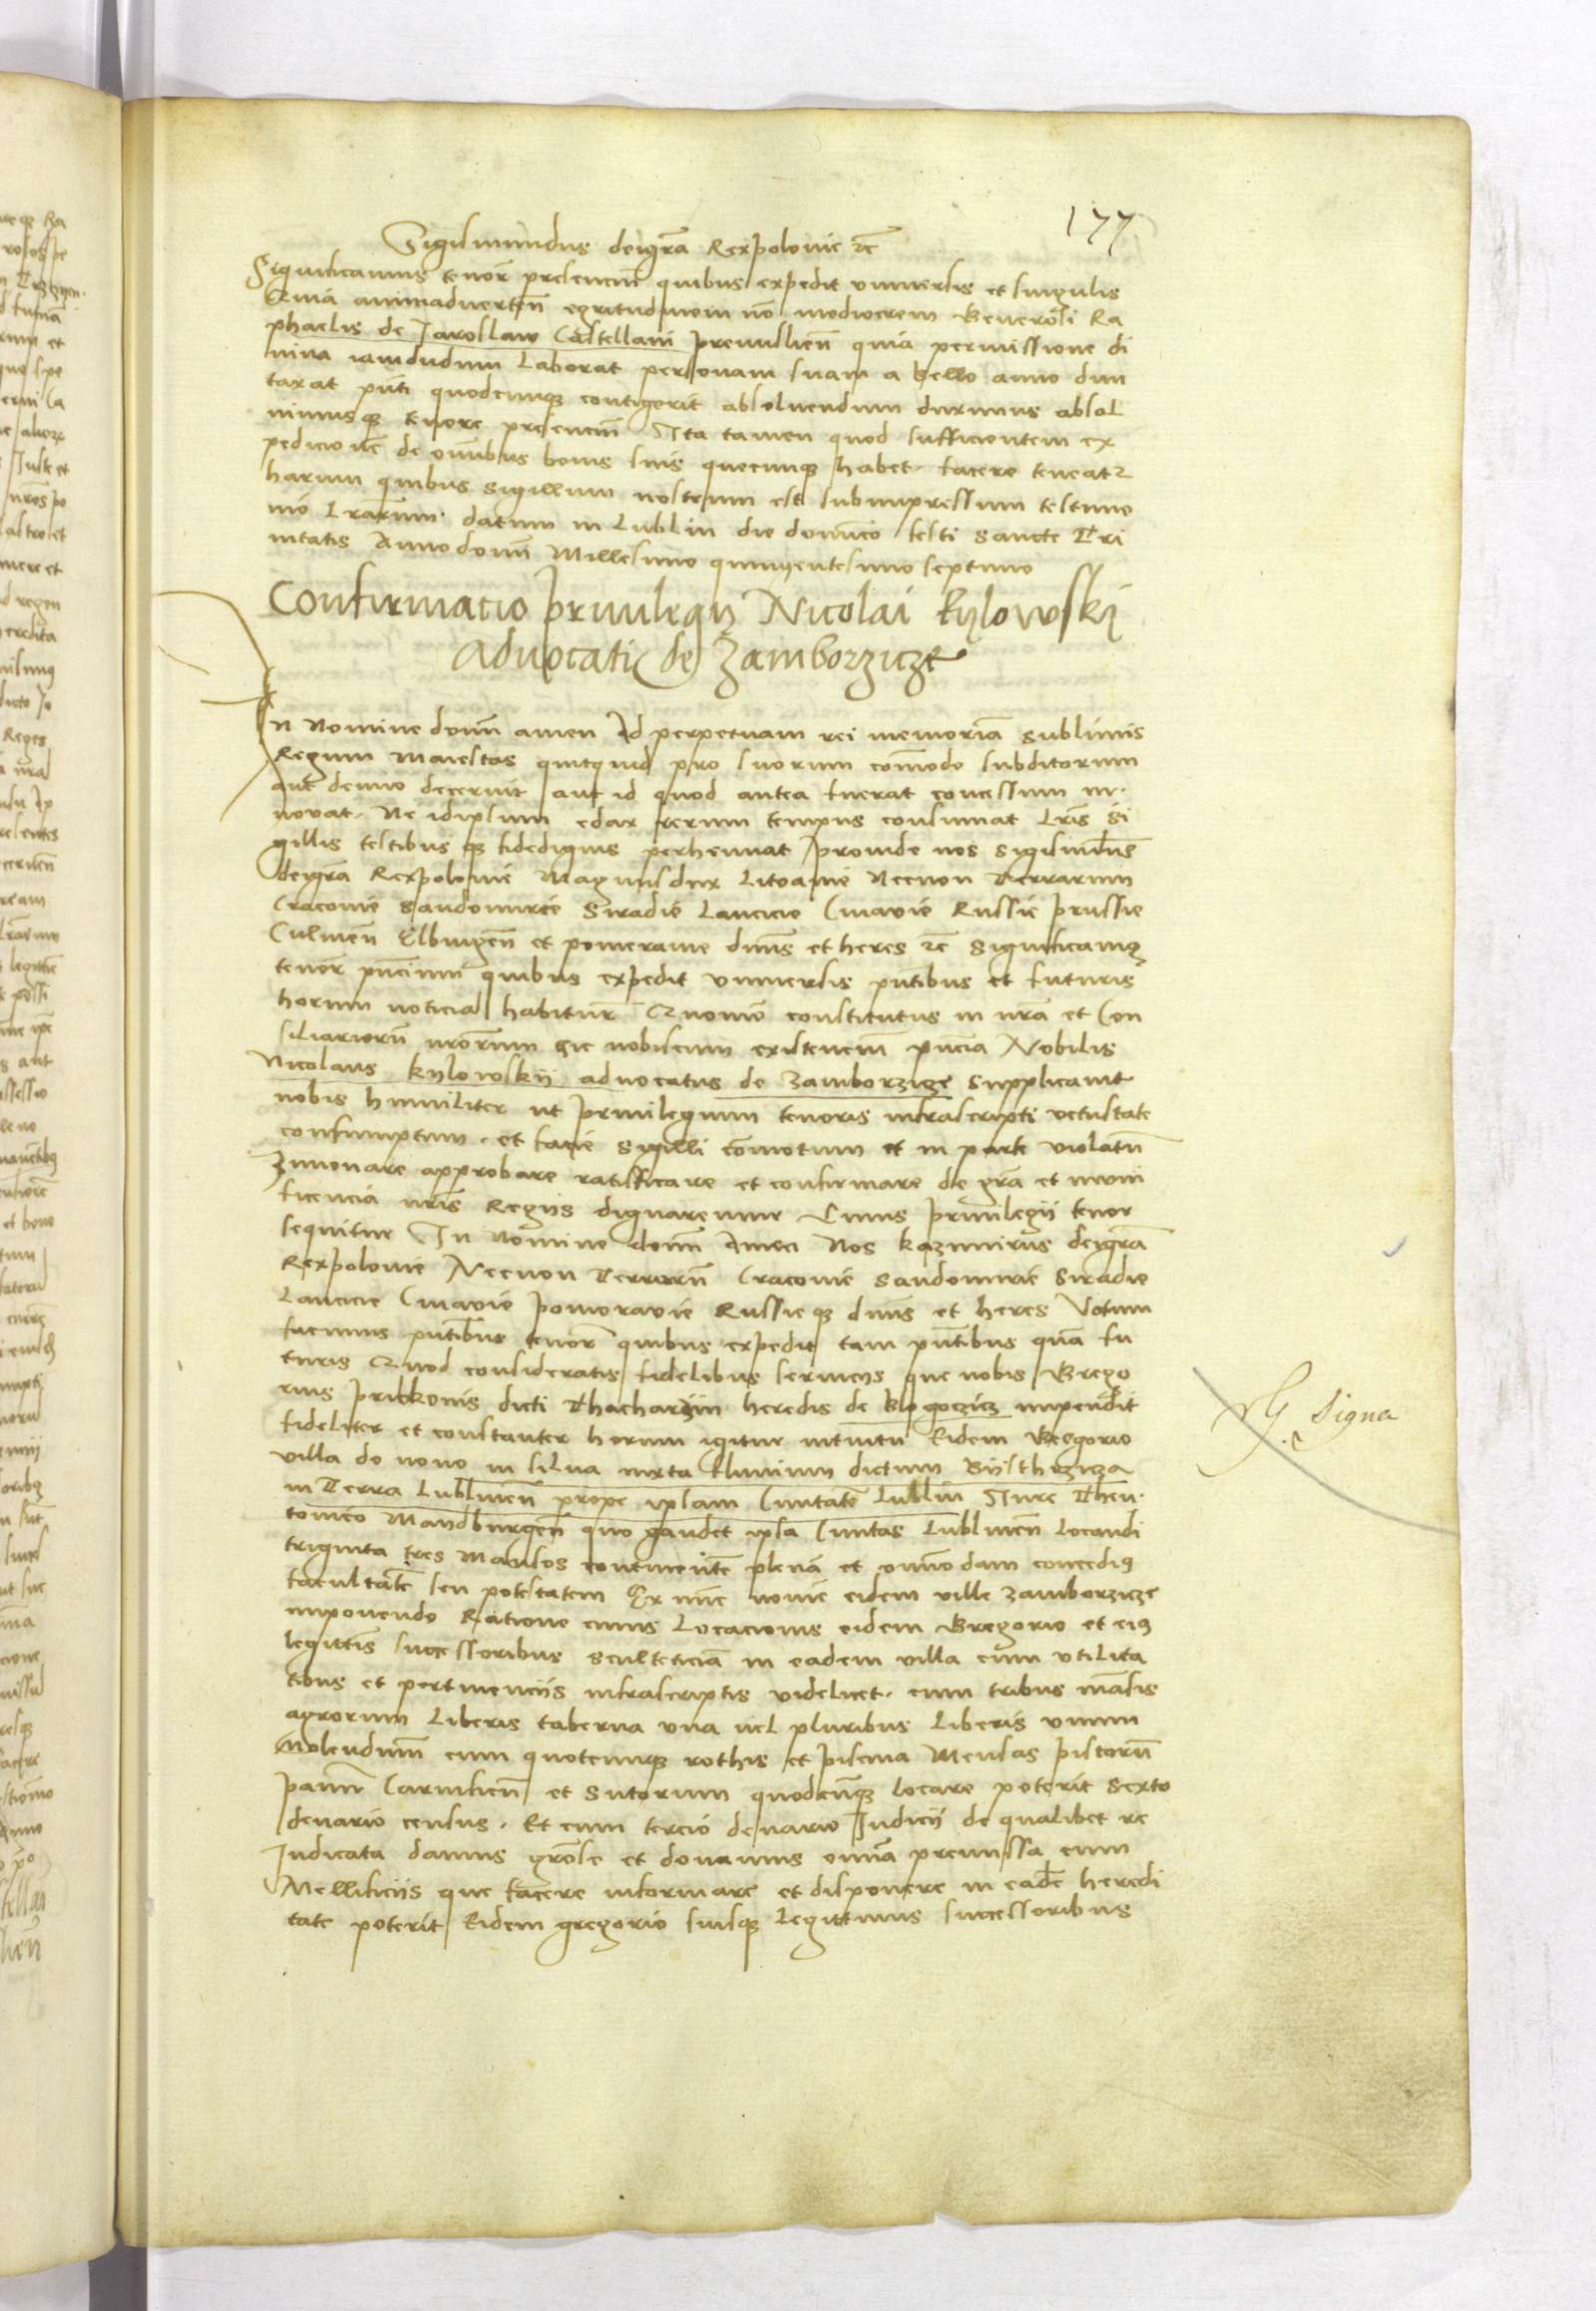 177
Sigismundus deigra Rexpolonie etc
Significamus tenor presencium quibus expedit universis et singulis
Quia animadverten egritudinem non mediocrem Generosi Ra
phaelis de Jaroslaw Castellani premislien quia permissione di
vina iamdudum laborat personam suam a bello anno dun
taxat pnti quodcunque contigerit absolvendum duximus absol
vimusque tenore presencium Ita tamen quod sufficientem ex
pedicione de omnibus bonis suis quecunque habet facere teneatur
harum quibus sigillum nostrum est subimpressum testimo
nio lrarum datum in Lublin die dominico festi sancte Tri
nitatis Anno domi Millesimo quingentesimo septimo
Confirmacio privilegii Nicolai Kylowskii
advocati de Zamborzicze
In Nomine domi amen Ad perpetuam rei memoria sublimis
Regum Maiestas quitquid pro suorum comodo subditorum
aut denuo decernit aut id quod antea fuerat concessum in
novat Ne idipsum edax rerum tempus consumat lris si
gillis testibusque fidedignis perhennat proinde nos sigismdus
deigra Rexpolonie Magnusdux Litvanie Necnon Terrarum
Cracovie Sandomirie Siradie Lancicie Cuiavie Russie prussie
Culmen Elbingen et pomeranie dnus et heres etc Significamus
tenor pncium quibus expedit universis pntibus et futuris
horum noticia habitur Quomo constitutus in nra et Con
siliariorum nrorum hic nobiscum existencium pncia Nobilis
Nicolaus Kylowskii advocatus de Zamborzicze supplicavit
nobis humiliter ut privilegium tenoris infrascripti vetustate
consumptum et facie sigilli comotum et in parte violatum
Innovare approbare ratifficare et confirmare de gra et muni
ficencia nris Regiis dignaremur Cuius privilegii tenor
sequitur In Nomine domi Amen Nos Kazimirus deigra
Rexpolonie Necnon Terrarum Cracovie Sandomirie Siradie
Lancicie Cuiavie pomoravie Russieque dnus et heres Notum
facimus pntibus tenor quibus expedit tam pntibus qua fu
turis Quod consideratis fidelibus serviciis que nobis Grego
rius pribkonis dicti Thacharzin heredis de impendit
fideliter et constanter horum igitur intuitu Eidem Gregorio
villa de novo in silva iuxta fluvium dictum Biisthrzicza
in Terra Lublinen prope ipsam Civitate Lublin Iure Theu
tonico Mandburgen quo gaudet ipsa Civitas Lublinen locandi
triginta tres Mansos continente plena et omnodam concedimus
facultate seu potestatem Ex nunc nomen eidem ville Zamborzicze
imponendo Ratione cuius Locacionis eidem Gregorio et eius
legittis successoribus scultetiam in eadem villa cum utilita
tibus et pertinenciis infrascriptis videlicet cum tribus mansis
agrorum liberis taberna una vel pluribus liberis unum
Molendinum cum quotcunque rothis et piscina Mensas pistorum
panum Carnificum et Sutorum quodcunque locare poterit Sexto
denario census Et cum tercio denario Iudicii de qualibet re
Iudicata damus grose et donamus omnia premissa cum
Mellificiis que facere informare et disponere in eade heredi
tate poterit Eidem gregorio suisque legittimis successoribus
Signa